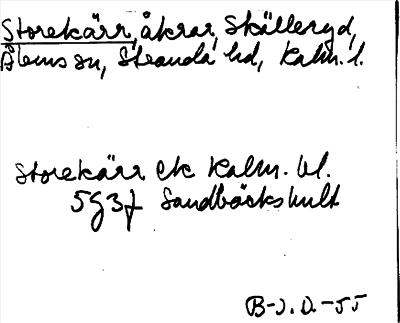 Storekärr, åkrar, Skälleryd,
Ålems sn, Stranda hd, Kalm. l.
Storekärr ek Kalm. bl.
5G3f Sandbäckshult
B-J.D.-55